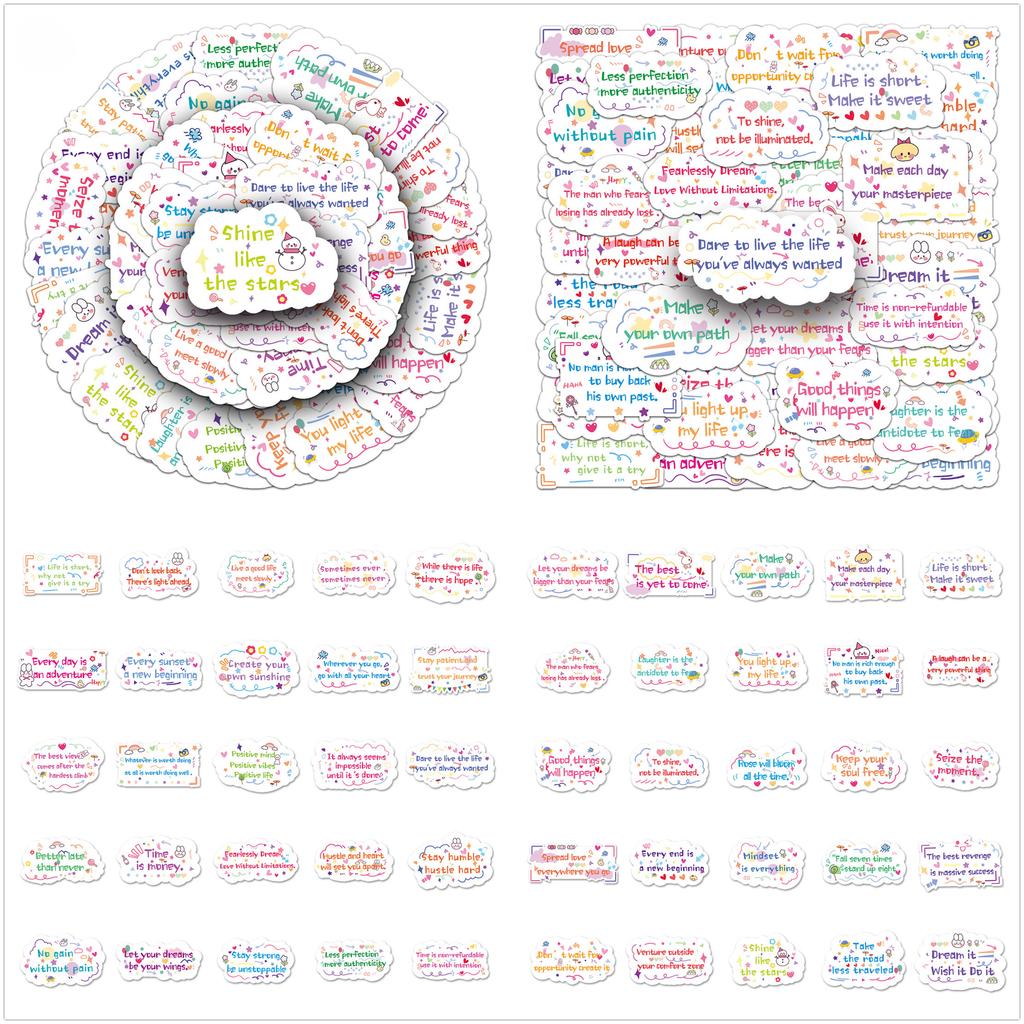 Less perfect
more authe
every thi
own path
Make
No gain
to come!
earlessly
Don't wait f
oppor
Every end is
Seize t
momen
Dare to live the life
you've always wanted
Stay
be un
Shine
like
the stars
Every su
a new
Dream
Life is
Make it
Live a good
meet slowly
Time
Don't look
There's
will happen
Shine
like
the stars
Positi
Positi
Positi
Keep
You light
my life
Spread love
Less perfection
more authenticity
Don't wait fr
opportunity c
is worth doing
Life is short
Make it sweet
No gain
without pain
To shine,
not be illuminated.
Make each day
your masterpiece
The man who fears
losing has already lost.
Fearlessly Dream,
Love Without Limitations.
A laugh can be
very powerful
Dare to live the life
you've always wanted
trust your journey
Dream it
Make
your own path
Time is non-refundable
use it with intention
et your dreams
gger than your fears
the stars
No man is
to buy back
his own past.
Good things
will happen
light up
my life
aughter is the
antidote to fea
Life is short,
why not
give it a try
an adven
Live a good
meet slowly
beginning
Life is short,
why not
give it a try
Don't look back
There's light ahead
Live a good life
meet slowly
Sometimes ever
sometimes never
While there is life
there is hope
Let your dreams be
bigger than your fears
The best
is yet to come!
Make
your own path
Make each day
your masterpiece
Life is short
Make it sweet
Every day is
an adventure
Every sunset
a new beginning
Create your
own sunshine
Wherever you go,
go with all your heart
Stay patient and
trust your journey
The man who fears
losing has already lost.
Laughter is the
antidote to fear
You light up
my life
Nice!
No man is rich enough
to buy back
his own past.
A laugh can be a
very powerful thing
The best view
comes after the
hardest climb
Whatever is worth doing
at all is worth doing well.
Positive mind
Positive vibes
Positive life
It always seems
impossible
until it's done
Dare to live the life
you've always wanted
Good things
will happen
To shine,
not be illuminated.
Rose will bloom
all the time.
Keep your
soul free.
Seize the
moment.
Better late
than never
Time
is money.
Fearlessly Dream,
Love Without Limitations.
Hustle and heart
will set you apart.
Stay humble,
hustle hard
Spread love
everywhere you go
Every end is
a new beginning
Mindset
is everything
Fall seven times
stand up eight
The best revenge
is massive success
No gain
without pain
Let your dreams
be your wings.
Stay strong
be unstoppable
Less perfection
more authenticity
Time is non-refundable
use it with intention
Don't wait for
opportunity create it
Venture outside
your comfort zone
Shine
like
the stars
Take
the road
less traveled
Dream it
Wish it Do it